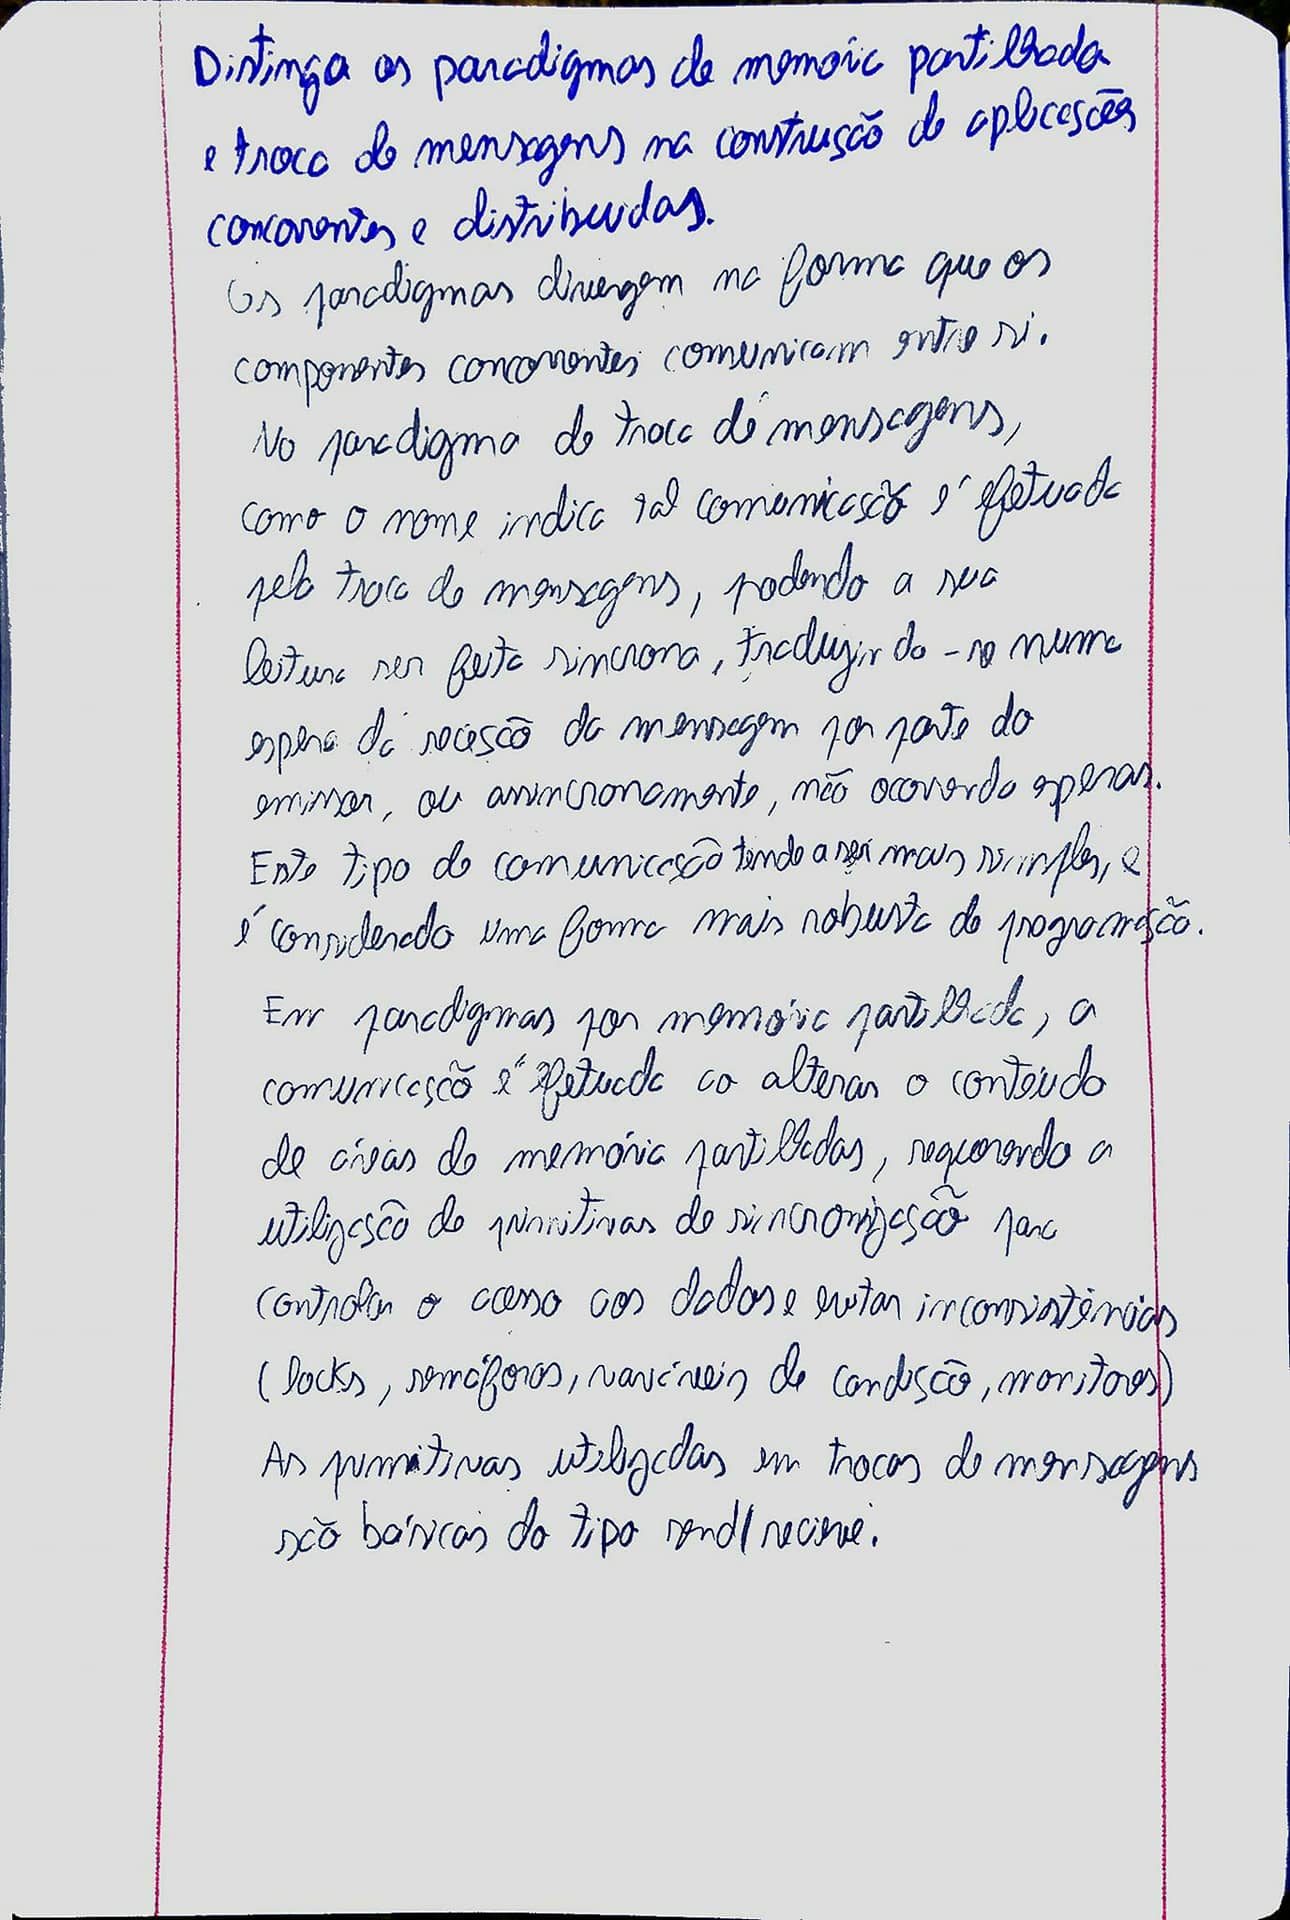 Distinga os paradigmas de memória partilhada
e troca de mensagens na construção de aplicações
concorrentes e distribuidas.
Os paradigmas divergem na forma que os
componentes concorrentes comunicam entre si.
No paradigma de troca de mensagens,
como o nome indica tal comunicação é efetuada
pela troca de mensagens, podendo a sua
leitura ser feita sincrona, traduzindo-se numa
espera da receção da mensagem por parte do
emissor, ou assincronamente, não ocorrendo esperas.
Este tipo de comunicação tende a ser mais simples, e
é considerado uma forma mais robusta de programação.
Em paradigmas por memória partilhada, a
comunicação é efetuada ao alterar o conteúdo
de áreas de memória partilhadas, requerendo a
utilização de primitivas de sincronização para
controlar o acesso aos dados e evitar inconsistências
(locks, semáforos, variáveis de condição, monitores)
As primitivas utilizadas em trocas de mensagens
são básicas do tipo send/recieve.